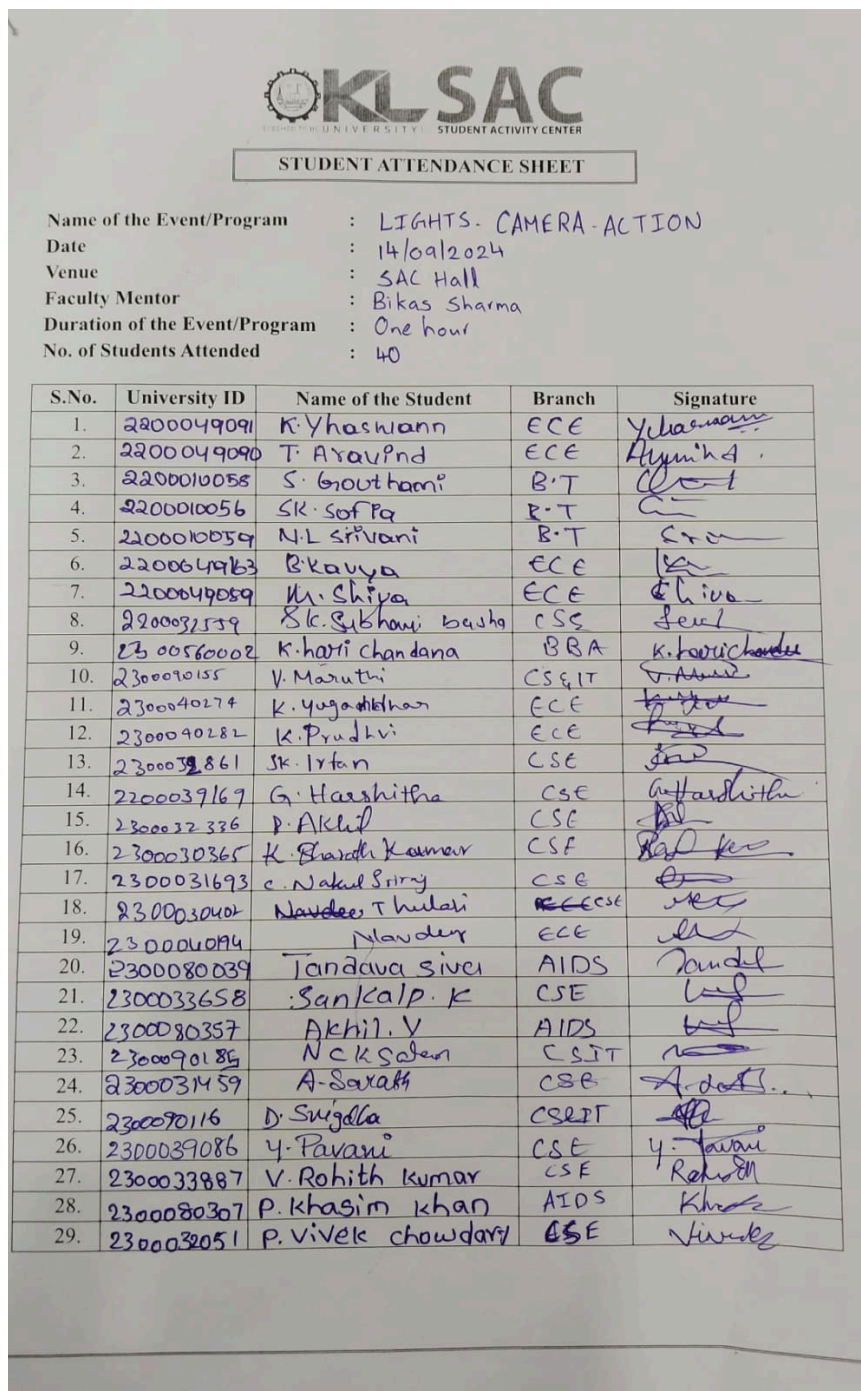 KL SAC
UNIVERSITY STUDENT ACTIVITY CENTER
STUDENT ATTENDANCE SHEET
Name of the Event/Program : LIGHTS- CAMERA-ACTION
Date : 14/09/2024
Venue : SAC Hall
Faculty Mentor : Bikas Sharma
Duration of the Event/Program : One hour
No. of Students Attended : 40
S.No. University ID Name of the Student Branch Signature
1. 2200049091 K.Yhaswann ECE
2. 2200049090 T. Aravind ECE
3. 2200010058 S. Gouthami B.T
4. 2200010056 SK. Sofia B.T
5. 2200010059 N.L Srivani B.T
6. B.Kavya ECE
7. 2200049089 M. Shiva ECE Shiva
8. 2200032539 Sk. Subhani basha CSE
9. 2300560002 K.hari chandana BBA K.harichandana
10. 2300090155 V. Maruthi CS&IT
11. 2300040274 K. ECE
12. 2300040282 K.Prudhvi ECE
13. SK. Irfan CSE
14. 2200039169 G. Harshitha CSE G.Harshitha
15. 2300032336 P. Akhil CSE
16. 2300030365 K. Bharath Kumar CSE
17. 2300031693 C. Nakul Sriraj CSE
18. 2300030402 Thulasi CSE
19. 2300040194 ECE
20. 2300080039 Tandava siva AIDS
21. 2300033658 Sankalp. K CSE
22. 2300080357 Akhil. V AIDS
23. 2300090185 CSIT
24. 2300031459 A-Sarath CSE
25. 2300090116 D. CS&IT
26. 2300039086 Y. Pavani CSE Y. Pavani
27. 2300033887 V. Rohith Kumar CSE
28. 2300080307 P. Khasim khan AIDS
29. 2300032051 P. Vivek chowdary CSE